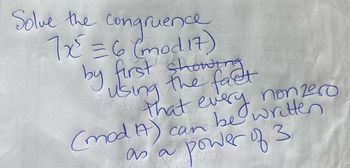 Solve the congruence
7x⁵ ≡ 6 (mod 17)
by first showing
using the fact
that every nonzero
(mod 17) can be written
as a power of 3